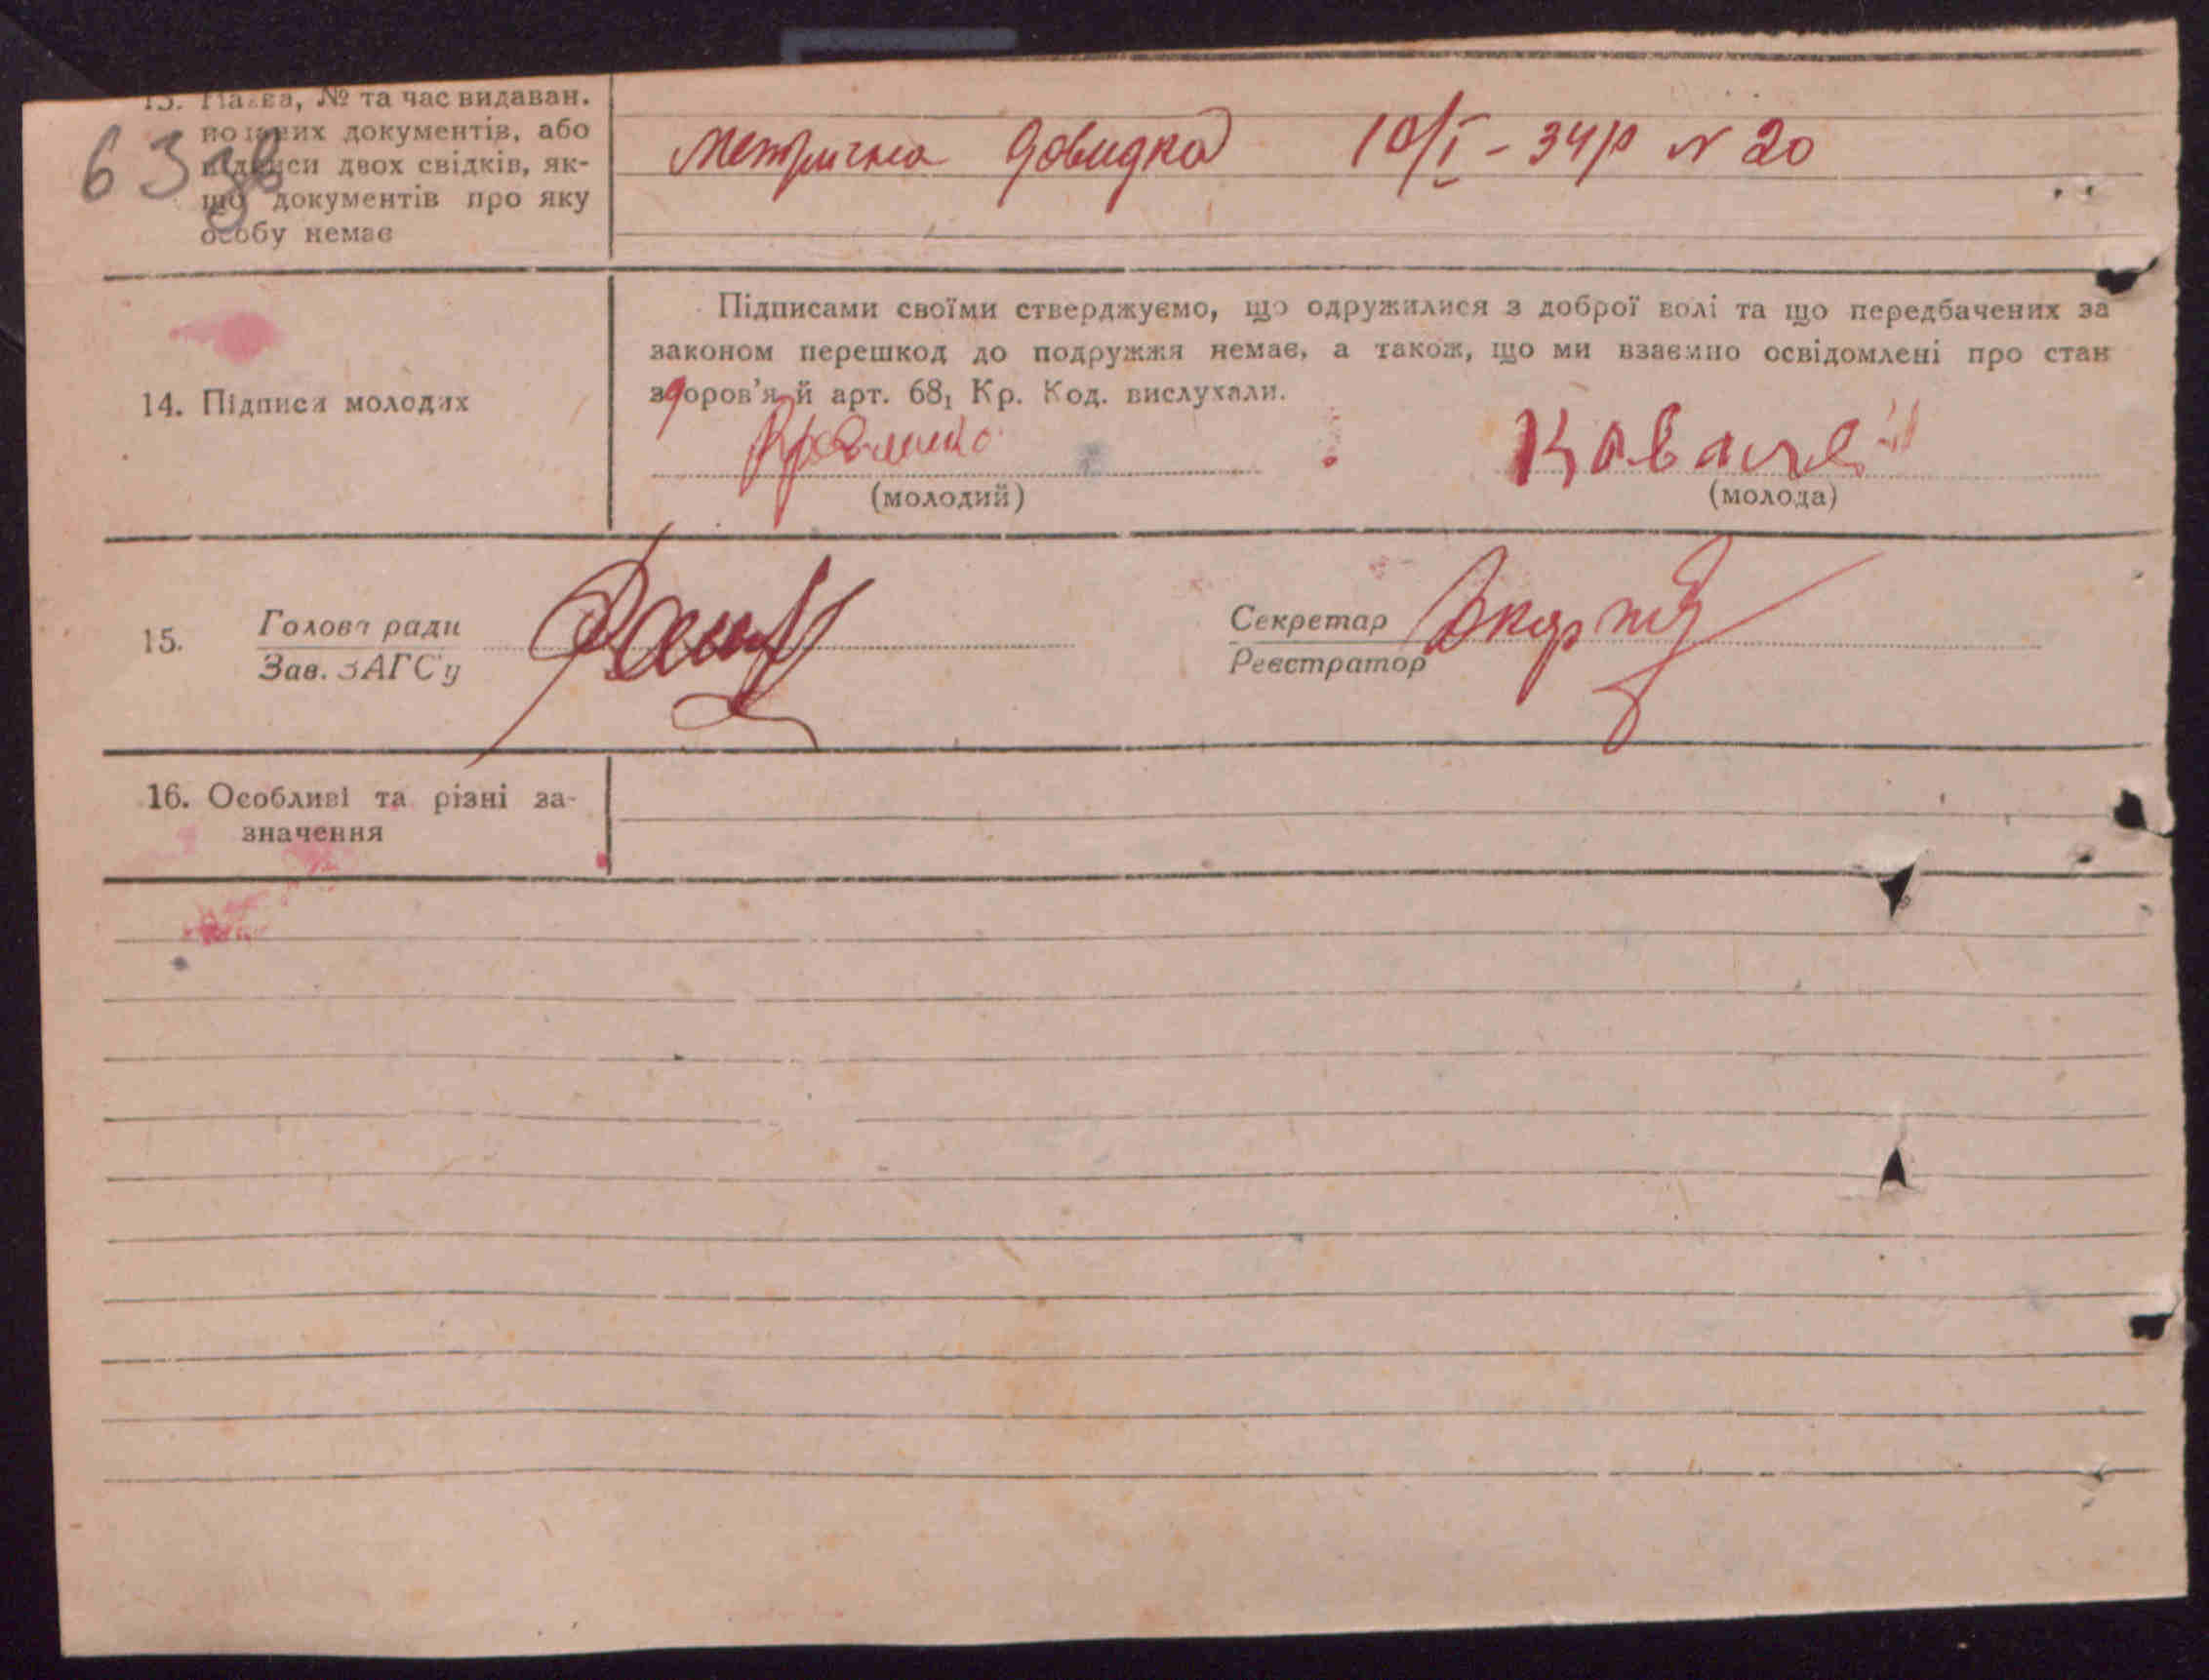 13. Назва, № та час видаван.
поданих документів, або
підписи двох свідків, як-
що документів про яку
особу немає
63 зв
Метрична довидка 10/I - 34р N 20
Підписами своїми стверджуємо, що одружилися з доброї волі та що передбачених за
законом перешкод до подружжя немає, а також, що ми взаємно освідомлені про стан
здоров'я й арт. 68₁ Кр. Код. вислухали.
14. Підписи молодих
Ковалей
(молодий) (молода)
15.
Голова ради
Зав. ЗАГС'у
Секретар
Реєстратор
16. Особливі та різні за-
значення